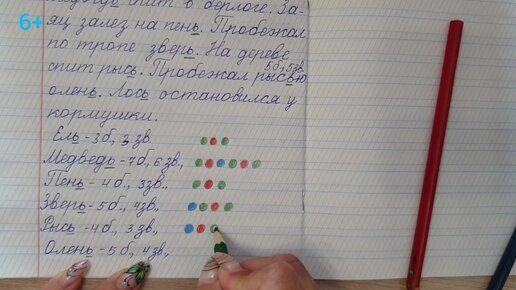 6+
Медведь спит в берлоге. За-
яц залез на пень. Пробежал
по тропе зверь. На дереве
5б., 5зв.
спит рысь. Пробежал рысью
олень. Лось остановился у
кормушки.
Ель - 3б., 3 зв.
Медведь - 7б, 6 зв.,
Пень - 4 б., 3зв.,
Зверь - 5б., 4зв.,
Рысь - 4 б., 3 зв.,
Олень - 5 б., 4зв.,